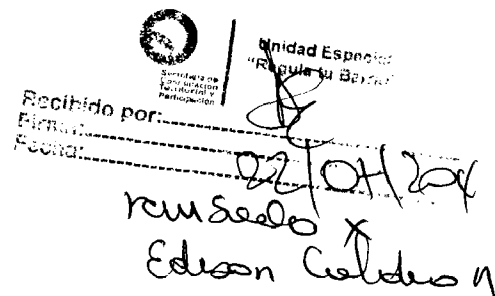 Secretaría de
Coordinación
Territorial y
Participación
Unidad Especial
"Regula tu Barrio"
Recibido por:
Firma:
Fecha:
02/04/201
Edison Calderon